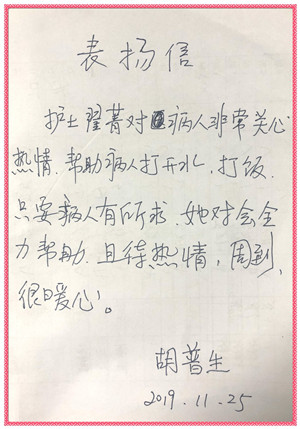 表扬信
护士翟菁对病人非常关心
热情.帮助病人打开水,打饭.
只要病人有所求.她对会全
力帮助.且待热情,周到,
很暖心。
胡普生
2019.11.25